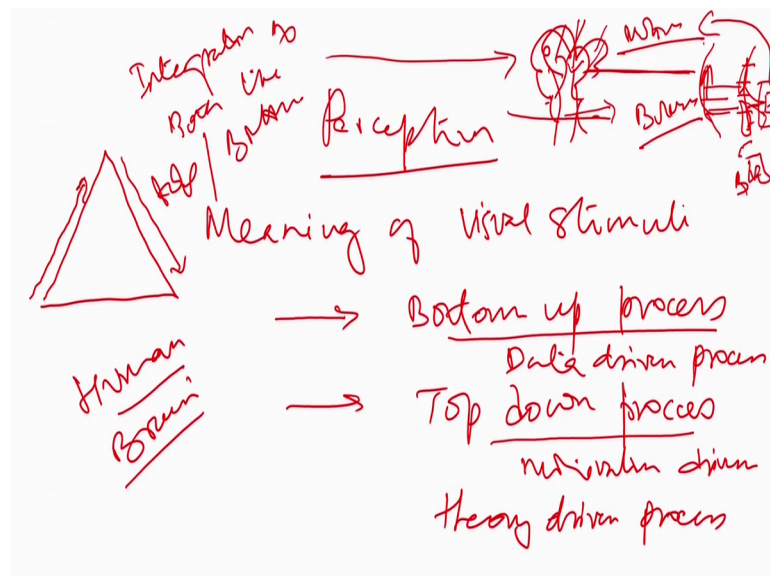 Integration of
Both the
Top / Bottom
Perception
Brown
Meaning of visual stimuli
Bottom up process
Data driven process
Top down process
motivation driven
theory driven process
Human
Brain